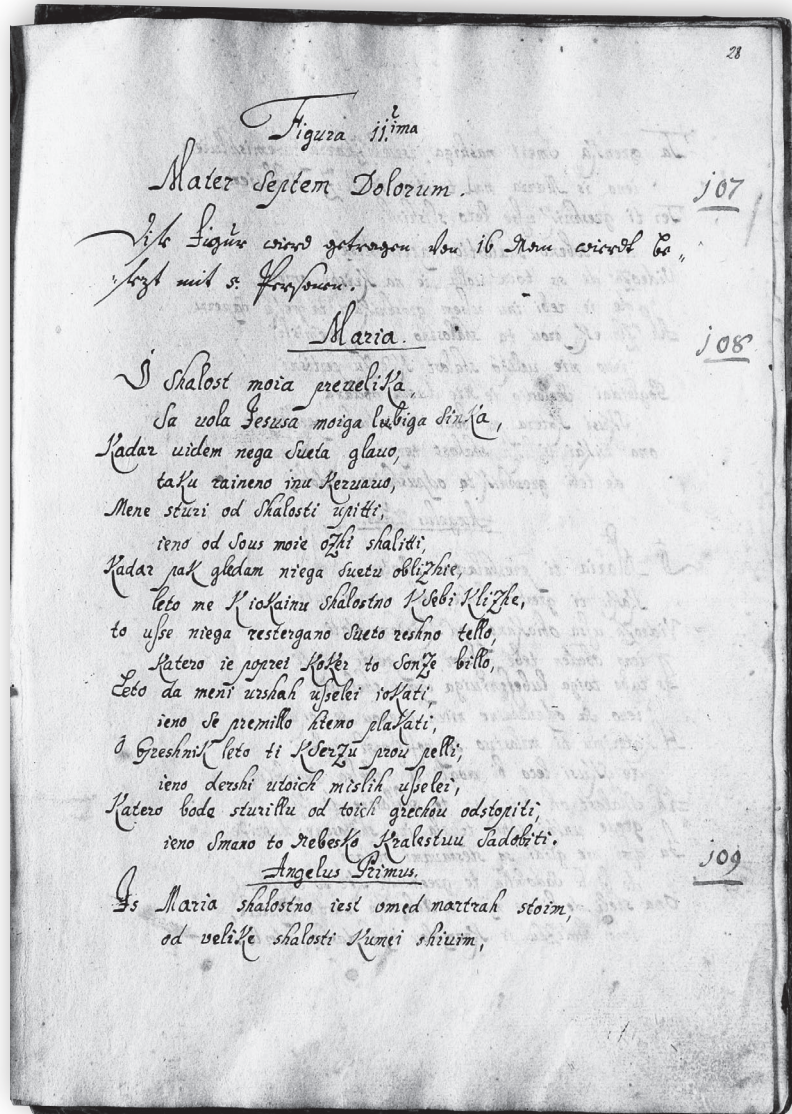 28
Figura 11.ima
Mater Septem Dolorum.
107
Dise Figur wierd getragen von 16 Man wierdt be„
„sezt mit 5. Personen.
Maria.
108
O Shalost moia preuelika,
Sa uola Jesusa moiga lubiga Sinka,
Kadar uidem nega Sueta glauo,
taku raineno inu Keruauo,
Mene sturi od Shalosti upitti,
ieno od Sous moie ozhi shalitti,
Kadar pak gledam niega Suetu oblizhie,
leto me K iokainu Shalostno Ksebi Klizhe,
to usse niega restergano Sueto reshno tello,
Katero ie poprei Koker to Sonze billo,
Leto da meni urshah usselei iokati,
ieno Se premillo htemo plakati,
O Greshnik leto ti Kserzu prou pelli,
ieno dershi utoich mislih usselei,
Katero bode sturillu od toich grechou odstopiti,
ieno Smano to Nebesko Kralestuu Sadobiti.
Angelus Primus.
109
Is Maria shalostno iest umed martrah stoim,
od velike shalosti Kumei shiuim,